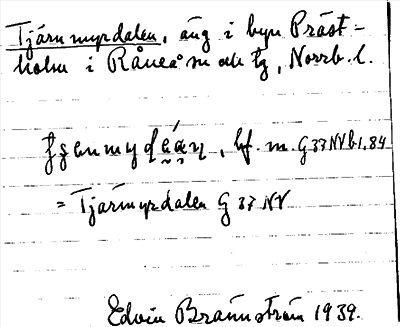 Tjärnmyrdalen, äng i byn Präst-
holm i Råneå sn och tg, Norrb. l.
bf. m. G 37 NV b 1, 84
= Tjärmyrdalen G 37 NV
Edvin Brännström 1939.